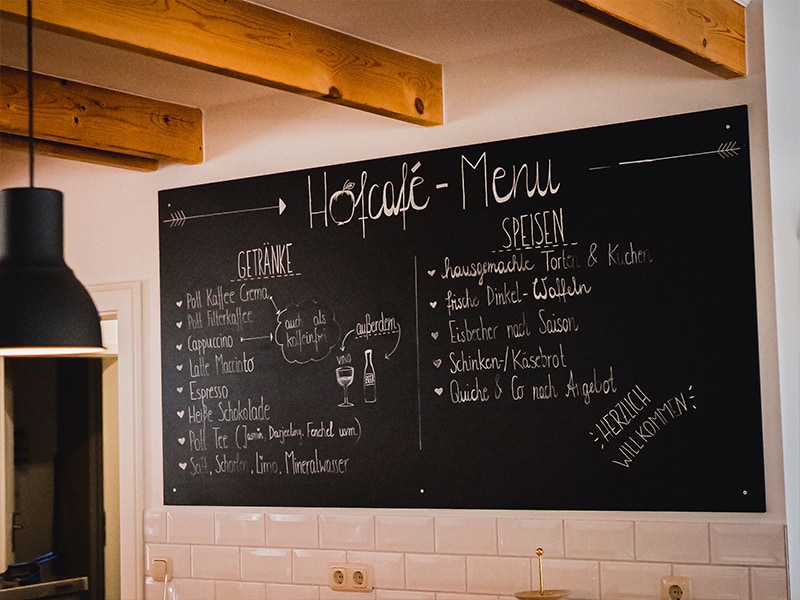 Hofcafé - Menu
GETRÄNKE
Pott Kaffee Crema
Pott Filterkaffee
Cappuccino
Latte Macciato
Espresso
Heiße Schokolade
Pott Tee (Jasmin, Darjeeling, Fenchel uvm.)
Saft, Schorlen, Limo, Mineralwasser
auch als
koffeinfrei
außerdem
VINO
BEER
SPEISEN
hausgemachte Torten & Kuchen
frische Dinkel-Waffeln
Eisbecher nach Saison
Schinken-/Käsebrot
Quiche & Co nach Angebot
HERZLICH
WILLKOMMEN